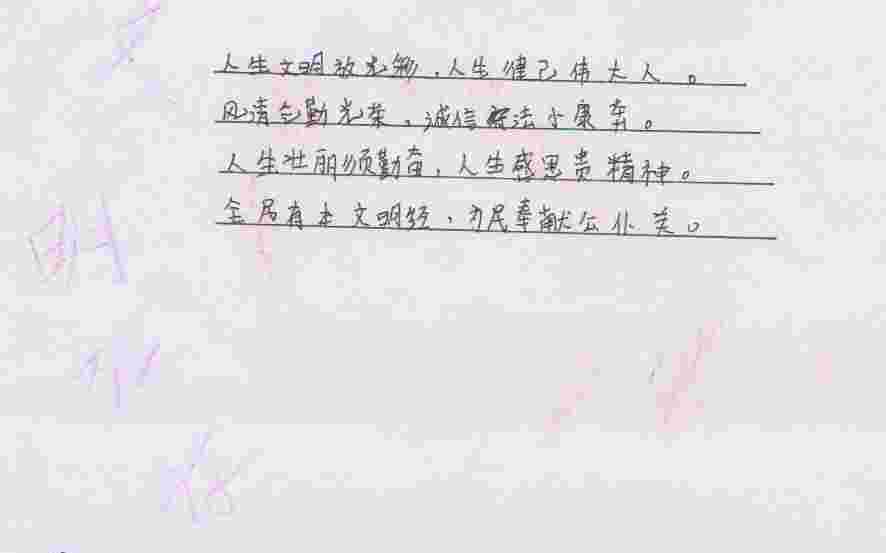 人生文明放光彩，人生健己伟大人。
风清气勤光荣，诚信守法小康奔。
人生壮丽须勤奋，人生感恩贵精神。
全局有本文明经，为民奉献公仆美。